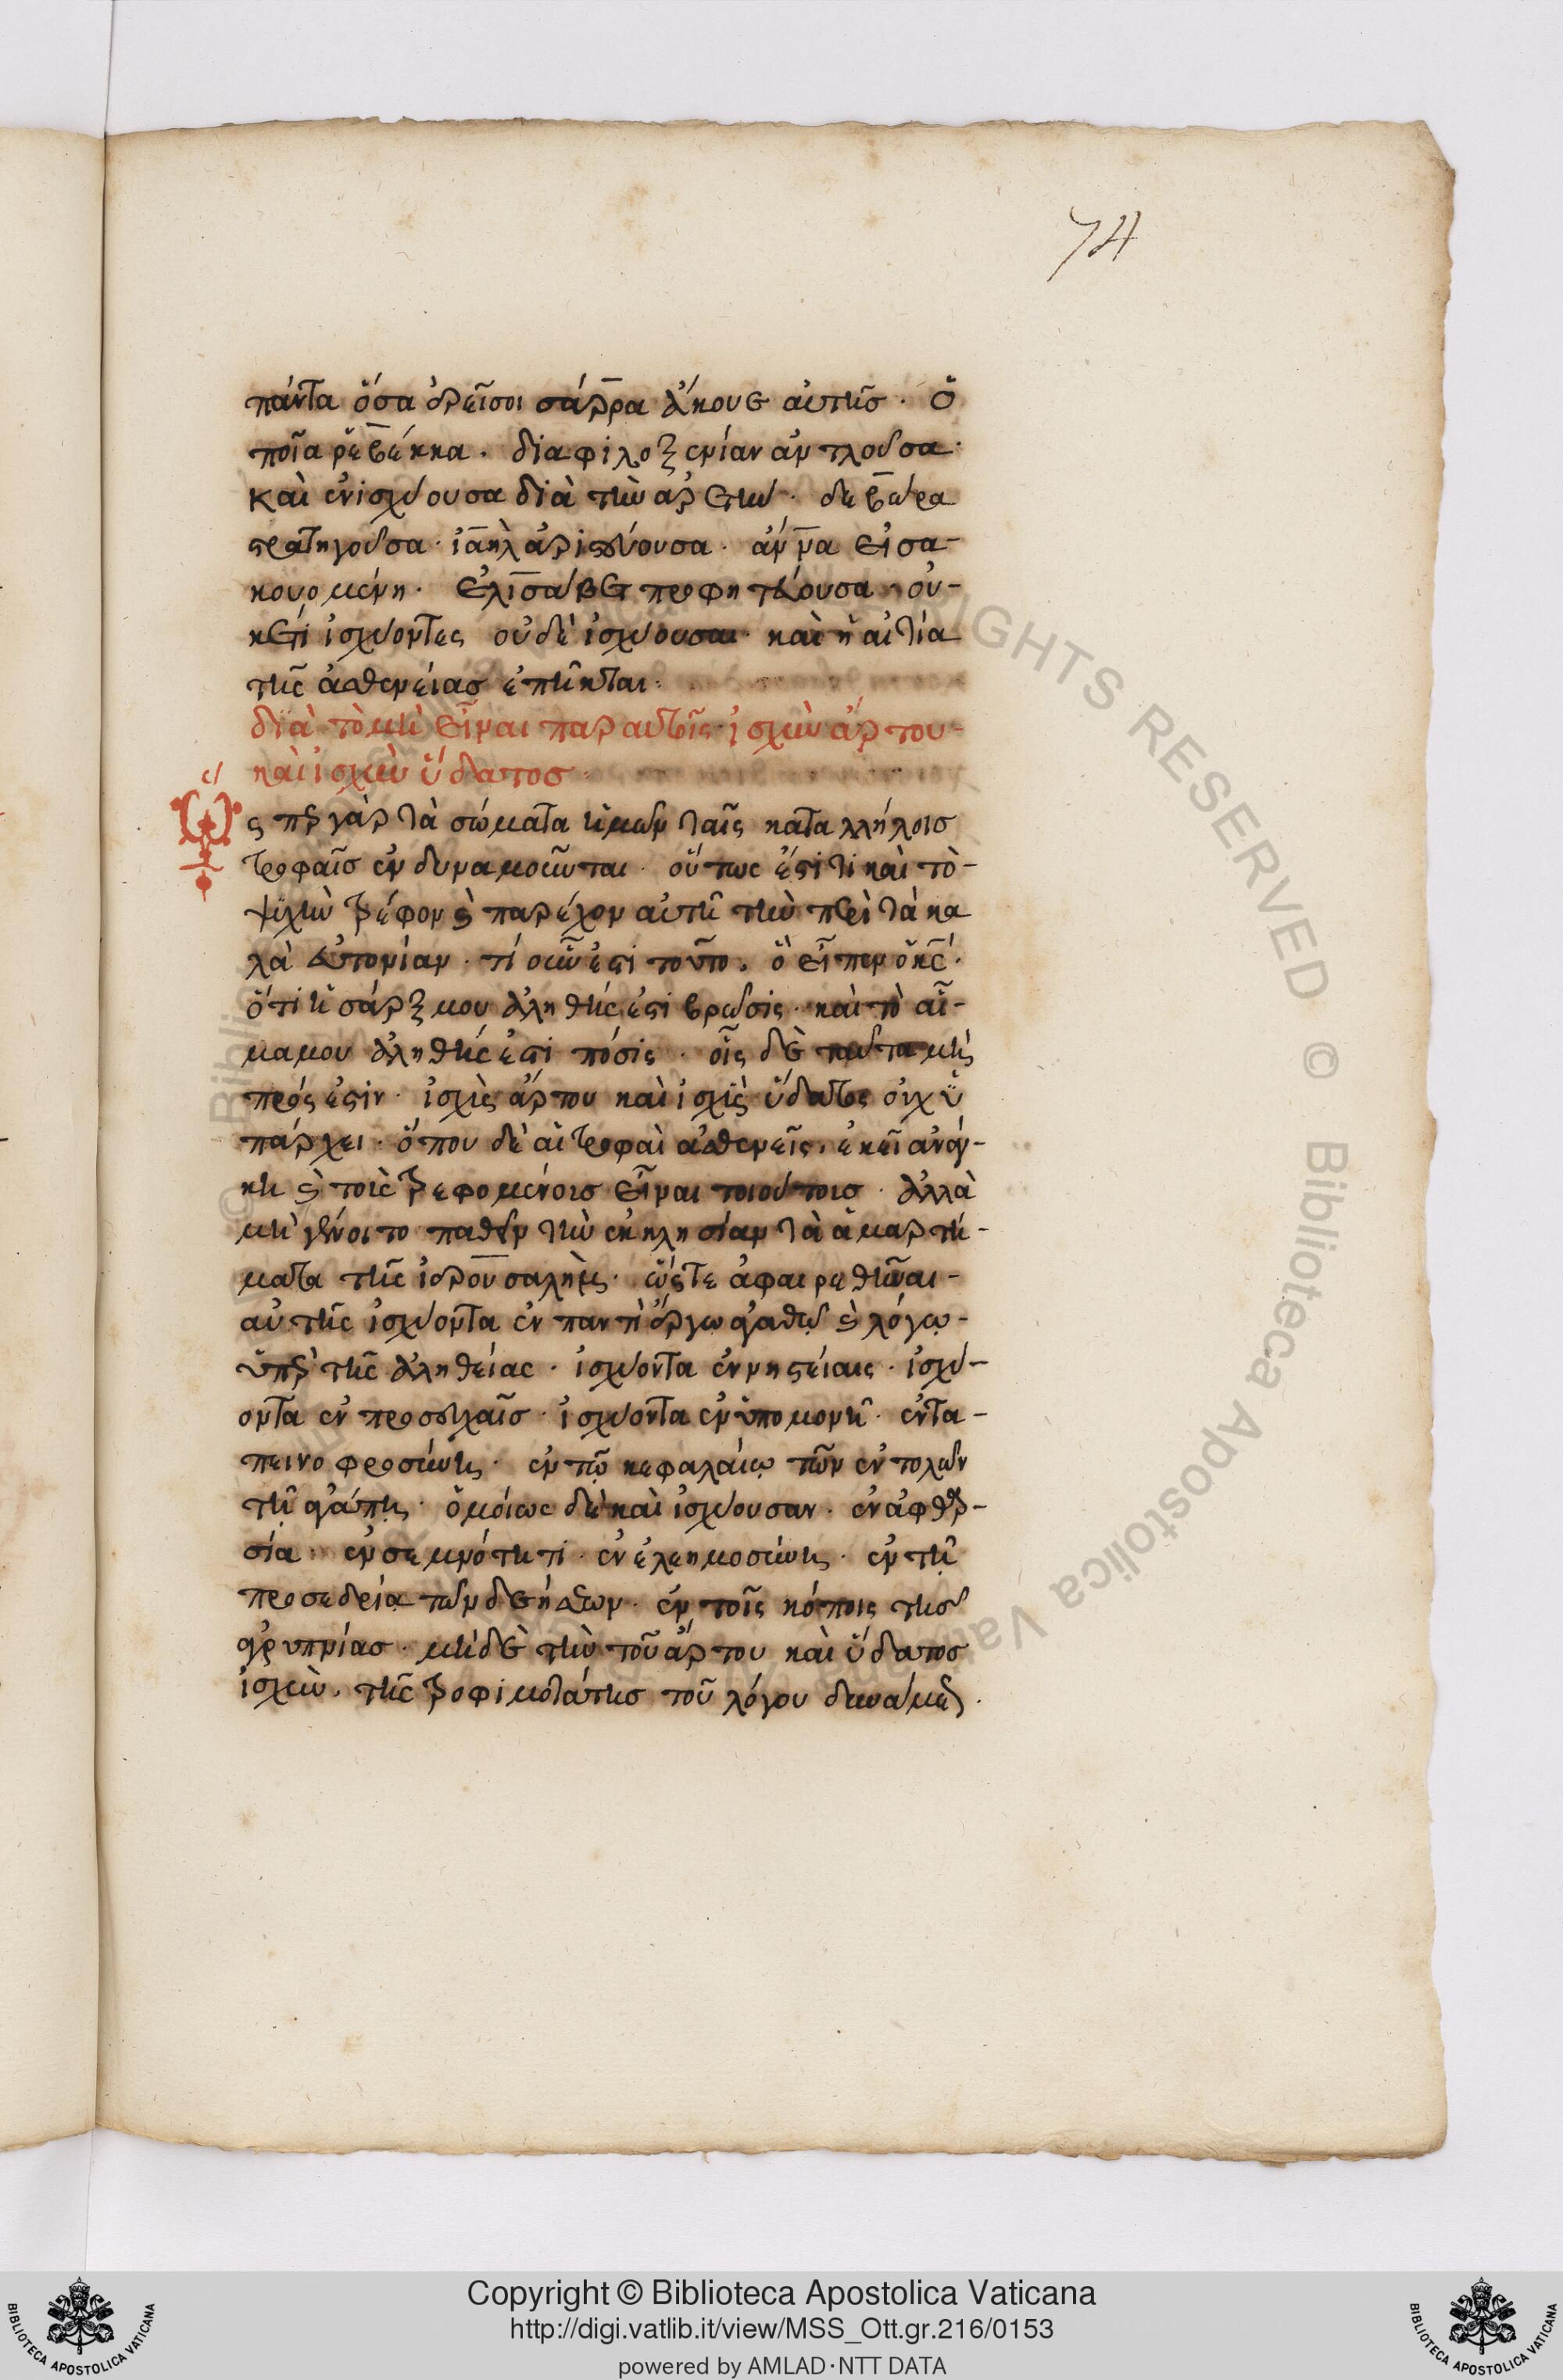 74
πάντα ὅσα ἐρεῖ σοι σάρρα ἄκουε αὐτῆς · ὁ
ποῖα ῥεβέκκα · δια φιλοξενίαν ἀντλοῦσα ·
καὶ ἐνισχύουσα διὰ τὴν ἀρετήν · δεβώρα
στρατηγοῦσα · ἰαὴλ ἀριστεύουσα · ἄννα εἰσα-
κουομένη · ἐλισάβετ προφητεύουσα · οὐ-
κέτι ἰσχύοντες οὐδὲ ἰσχύουσαι · καὶ ἡ αἰτία
τῆς ἀσθενείας ἐπῆκται ·
διὰ τὸ μὴ εἶναι παρ αὐτοῖς · ἰσχὺν ἄρτου -
καὶ ἰσχὺν ὕδατος ·
Ὥς περ γὰρ τὰ σώματα ἡμῶν ταῖς καταλλήλοις
τροφαῖς ἐνδυναμοῦνται · οὕτως ἔστι τι καὶ τὸ -
ψυχὴν τρέφον καὶ παρέχον αὐτῇ τὴν περὶ τὰ κα
λὰ εὐτονίαν · τί οὖν ἐστι τοῦτο · ὃ εἶπεν ὁ κς ·
ὅτι ἡ σάρξ μου ἀληθής ἐστι βρῶσις · καὶ τὸ αἷ-
μα μου ἀληθής ἐστι πόσις · οἷς δὲ ταῦτα μὴ
πρόςεστιν · ἰσχὺς ἄρτου καὶ ἰσχὺς ὕδατος οὐχ ὑ
πάρχει · ὅπου δὲ αἱ τροφαὶ ἀσθενεῖς · ἐκεῖ ἀνάγ-
κη καὶ τοὺς τρεφομένους εἶναι τοιούτους · ἀλλὰ
μὴ γένοιτο παθεῖν τὴν ἐκκλησίαν τὰ ἁμαρτή-
ματα τῆς ἱερουσαλήμ · ὥςτε ἀφαιρεθῆναι -
αὐτῆς ἰσχύοντα ἐν παντὶ ἔργῳ ἀγαθῷ καὶ λόγῳ -
ὑπὲρ τῆς ἀληθείας · ἰσχύοντα ἐν νηστείαις · ἰσχύ-
οντα ἐν προσευχαῖς · ἰσχύοντα ἐν ὑπομονῇ · ἐν τα -
πεινοφροσύνῃ · ἐν τῷ κεφαλαίῳ τῶν ἐντολῶν
τῇ ἀγάπῃ · ὁμοίως δὲ καὶ ἰσχύουσαν · ἐν ἀφθορ-
σία · ἐν σεμνότητι · ἐν ἐλεημοσύνῃ · ἐν τῇ
προσεδρίᾳ τῶν δεήσεων · ἐν τοῖς κόποις τῆς
ἀγρυπνίας · μὴ δὲ τὴν τοῦ ἄρτου καὶ ὕδατος
ἰσχὺν · τῆς τροφιμωτάτης τοῦ λόγου δυνάμεως ·
Copyright © Biblioteca Apostolica Vaticana
http://digi.vatlib.it/view/MSS_Ott.gr.216/0153
powered by AMLAD·NTT DATA